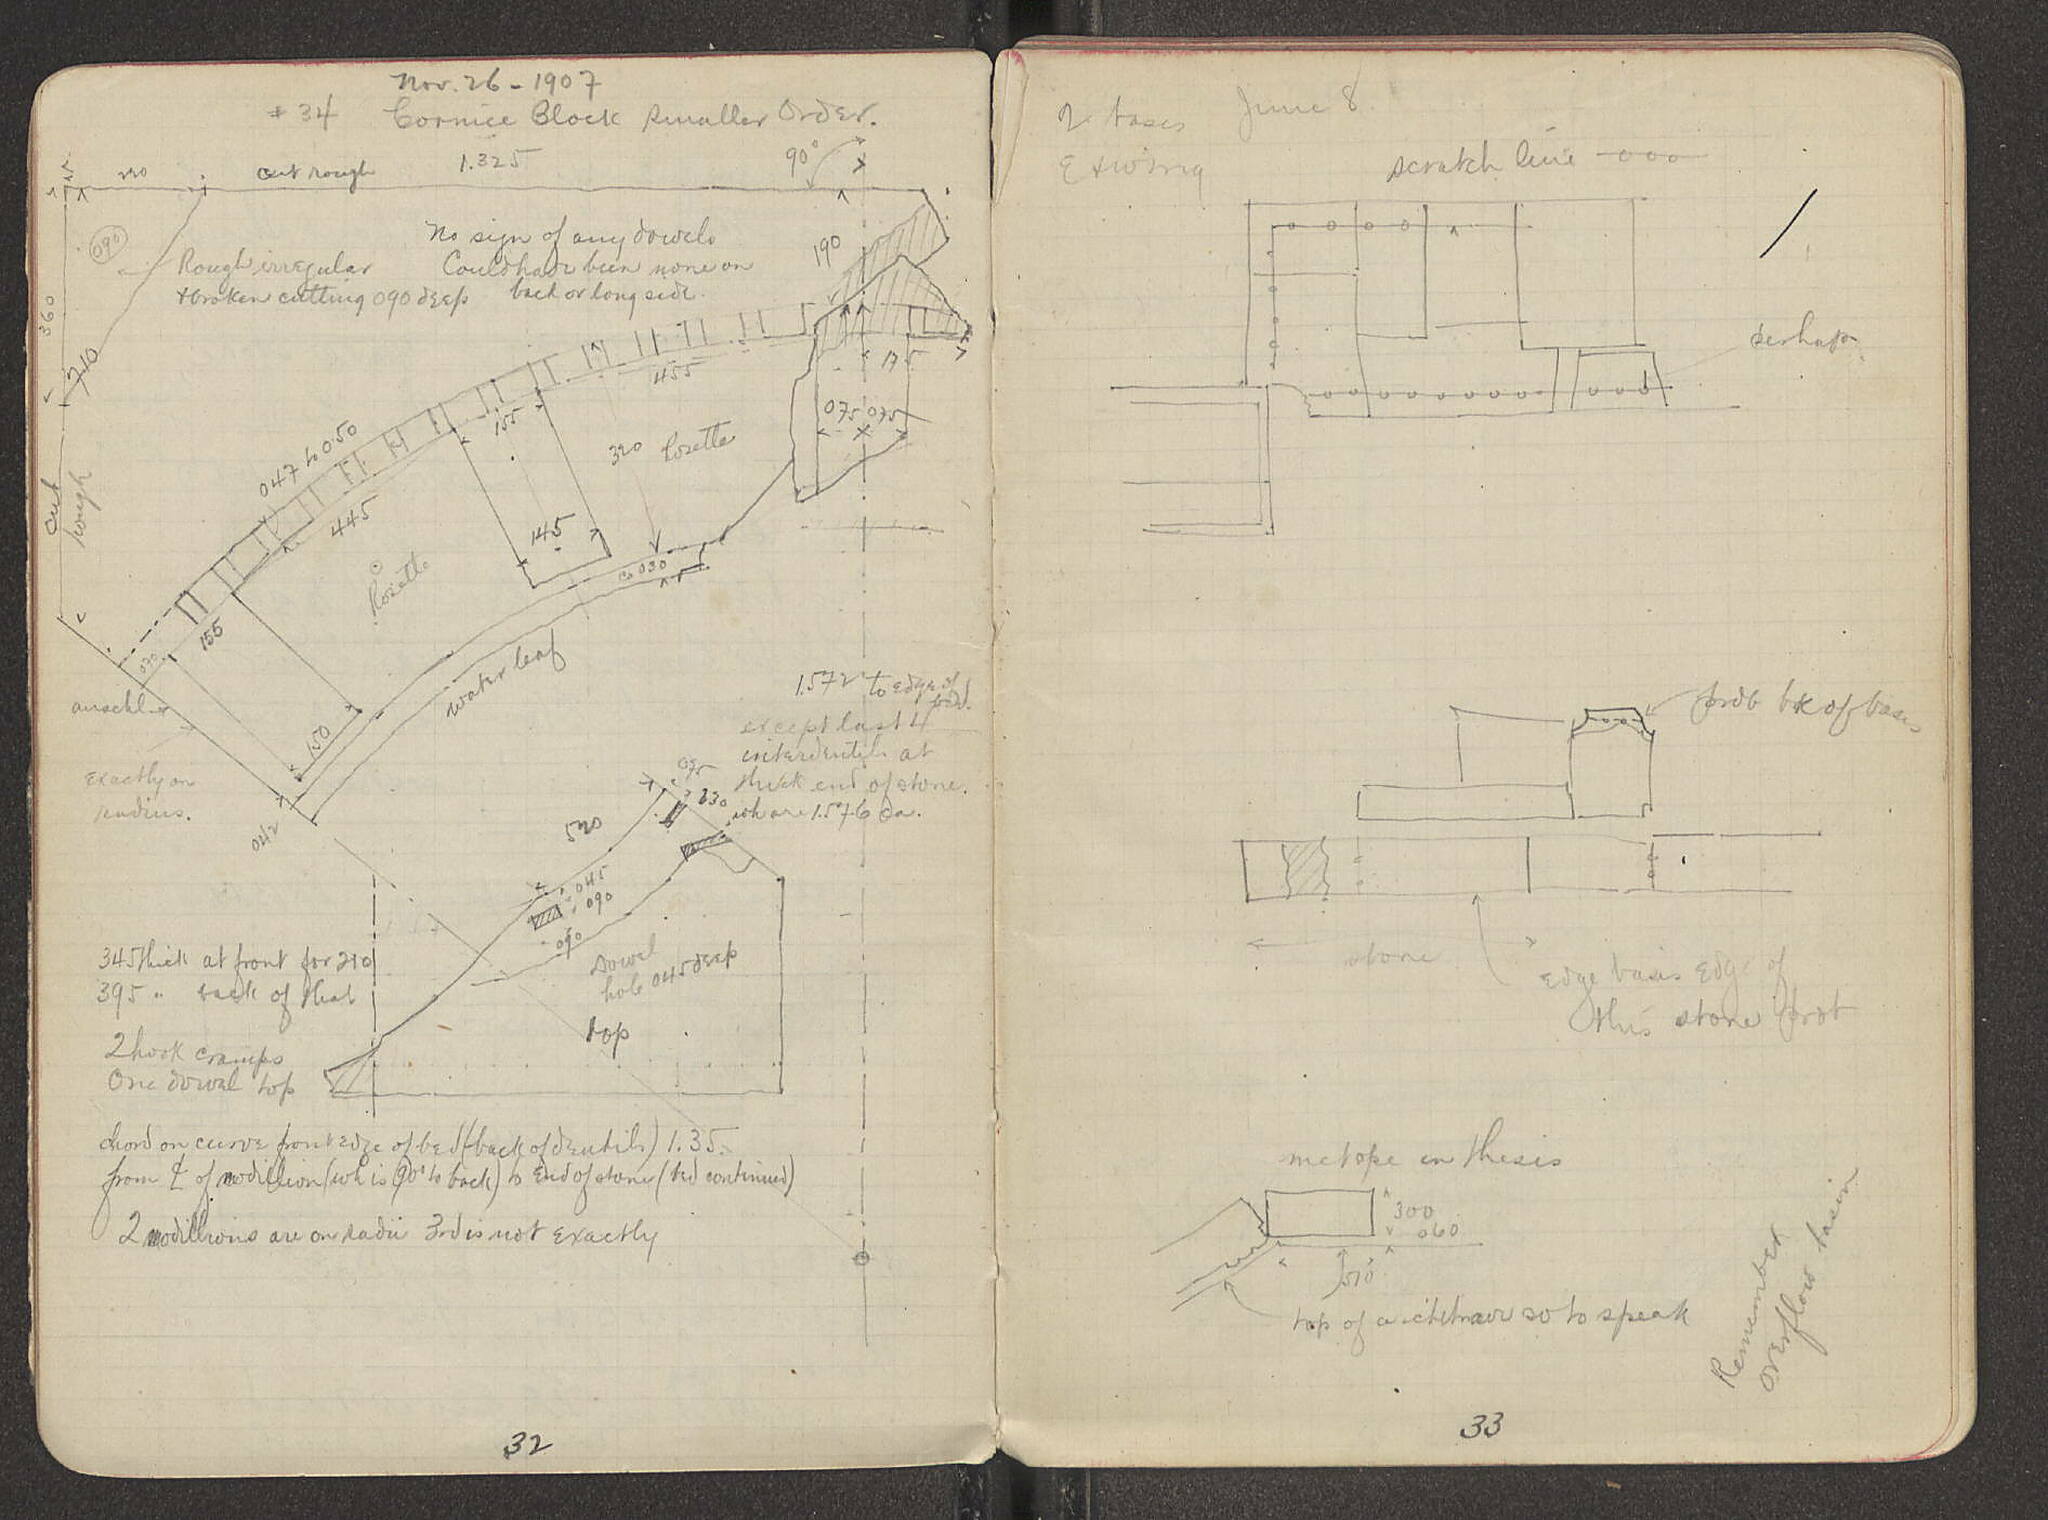 Nov. 26 - 1907
# 34 Cornice Block smaller Order.
cut rough 1.325 90°
090
No sign of any dowels
Could have been none on
back or long side.
Rough irregular
& broken cutting 090 deep
190
360
710
175
455
075 075
155
047 to 050
320 Rosette
445
cut rough
145
Rosette
030
155
070
water leaf
150
anschl
exactly on
radius.
042
1.572 to edge of bed
except last 4
interdentils at
thick end of stone.
wh are 1.576 ca.
075
230
520
045
090
090
Dowel
hole 045 deep
top
345 thick at front for 210
395 " back of that
2 hook cramps
One dowel top
chord on curve front edge of bed (back of dentils) 1.35.
from ℄ of modillion (wh is 90° to back) to end of stone (bed continued)
2 modillions are on radii 3rd is not exactly
32
2 bases June 8
E & wing
scratch line -o-o-o-
perhaps
prob bk of basis
stone
edge basis edge of
this stone prob
metope in thesis
300
060
510
top of architrave so to speak
Remember
overflow basin
33